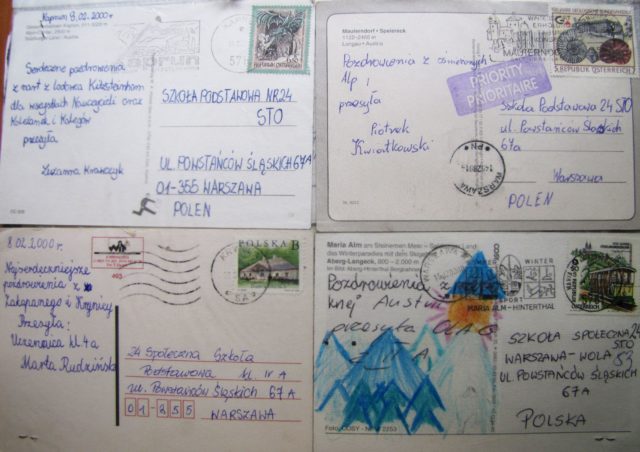 Kaprun 9.02.2000 r.
Serdeczne pozdrowienia
z nart z lodowca Kitzsteinhorn
dla wszystkich Nauczycieli oraz
Koleżanek i Kolegów
przesyła
Zuzanna Krawczyk
SZKOŁA PODSTAWOWA NR 24
STO
UL. POWSTAŃCÓW ŚLĄSKICH 67A
01-355 WARSZAWA
POLEN
Mauterndorf • Speiereck
Lungau • Austria
Pozdrowienia z ośnieżonych
Alp
przesyła
Piotrek
Kwiatkowski
PRIORITY
PRIORITAIRE
WINTER
MAUTERNDORF
REPUBLIK ÖSTERREICH
WARSZAWA
Szkoła Podstawowa 24 STO
ul. Powstańców Śląskich
67a
Warszawa
POLEN
8.02.2000 r.
Najserdeczniejsze
pozdrowienia z
Zakopanego i Krynicy
Przesyła:
Uczennica kl. 4a
Marta Rudzińska
POLSKA B
24 Społeczna Szkoła
Podstawowa kl. IV A
ul. Powstańców Śląskich 67 A
01-355 WARSZAWA
Maria Alm am Steinernen Meer
das Winterparadies mit dem
Aberg-Langeck, 800 – 2,000 m
Pozdrowienia z
Austrii
przesyła OLA G
WINTER
SPORT
MARIA ALM - HINTERTHAL
SZKOŁA SPOŁECZNA 24
STO
WARSZAWA-WOLA
UL. POWSTAŃCÓW ŚLĄSKICH
67A
POLSKA
Foto: COSY
2253